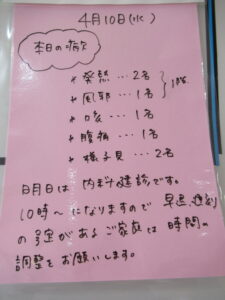 4月10日(水)
本日の病欠
発熱…2名
風邪…1名
咳…1名
腹痛…1名
様子見…2名
明日は内科健診です。
10時〜になりますので早退、遅刻
の予定があるご家庭は時間の
調整をお願いします。